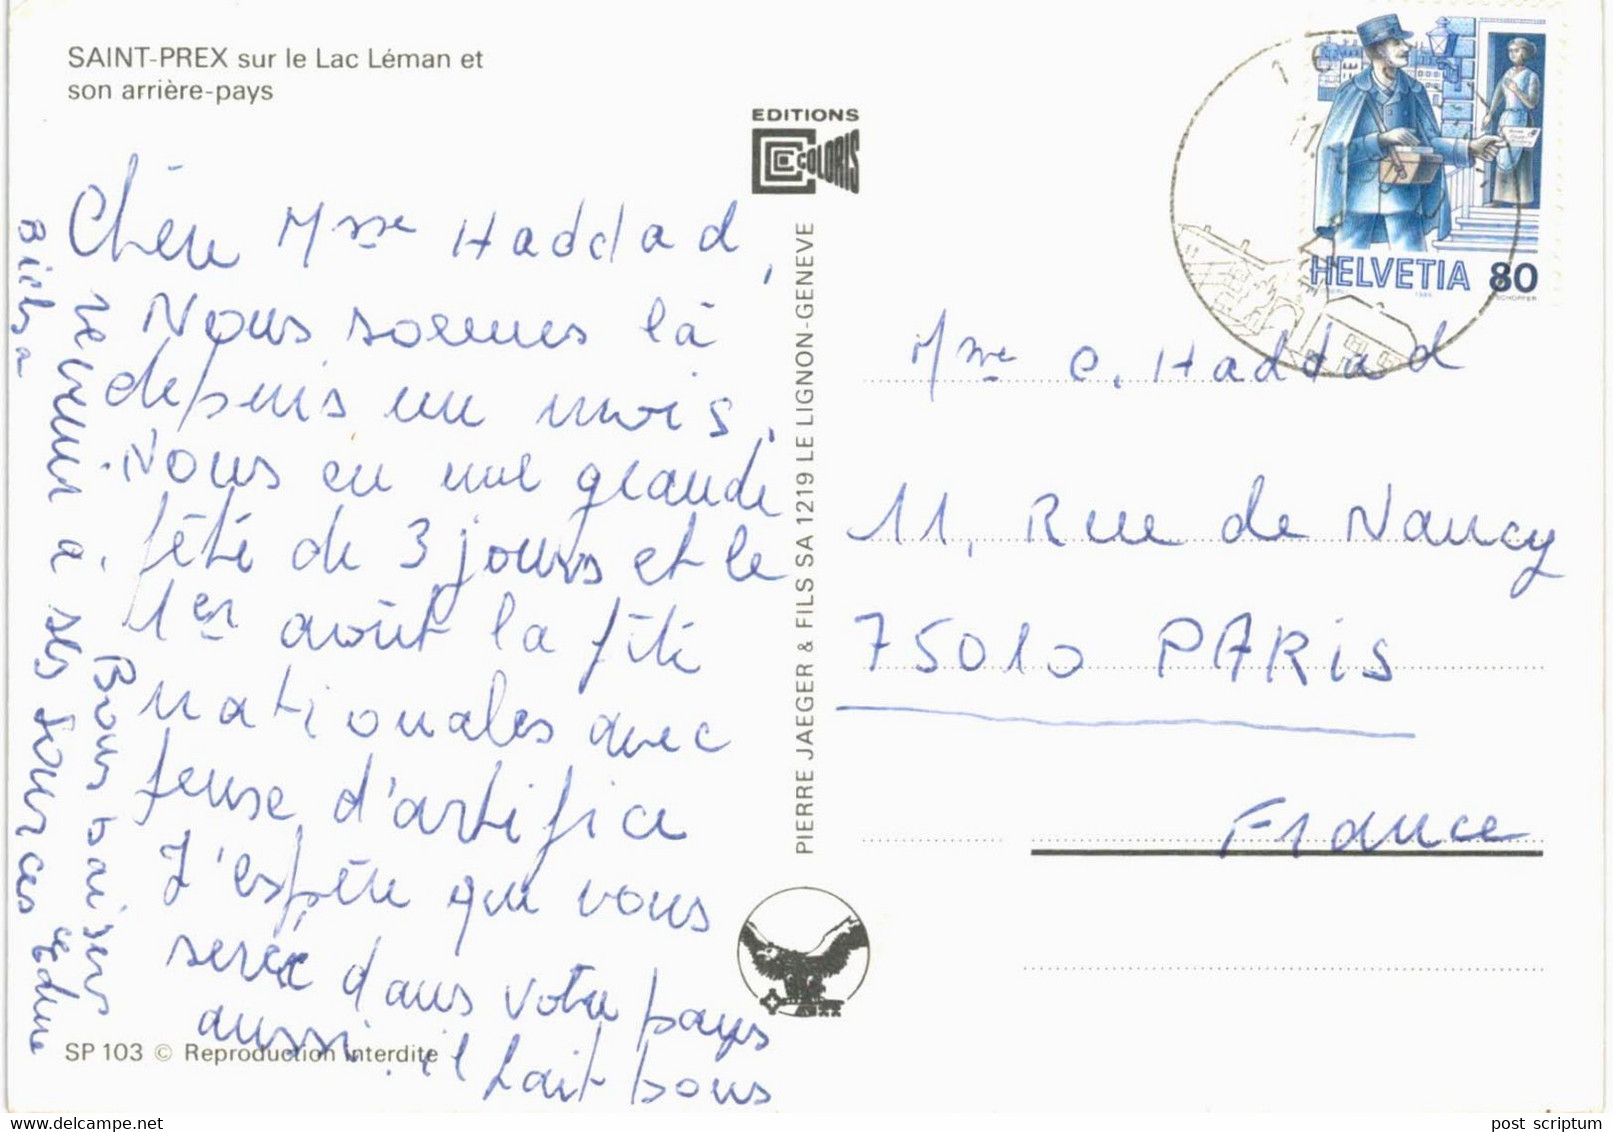 SAINT-PREX sur le Lac Léman et
son arrière-pays
EDITIONS
COLORIS
Chère Mme Haddad,
Nous sommes là
depuis un mois.
Nous eu une grande
fête de 3 jours et le
1er août la fête
nationales avec
feuse d'artifice
J'espère que vous
serez dans votre pays
aussi. il fait bons
revenir a ses sources
Bichra
Bons baisers
SP 103 © Reproduction interdite
PIERRE JAEGER & FILS SA 1219 LE LIGNON-GENEVE
HELVETIA 80
Mme C. Haddad
11, Rue de Nancy
75010 PARIS
France
post_scriptum